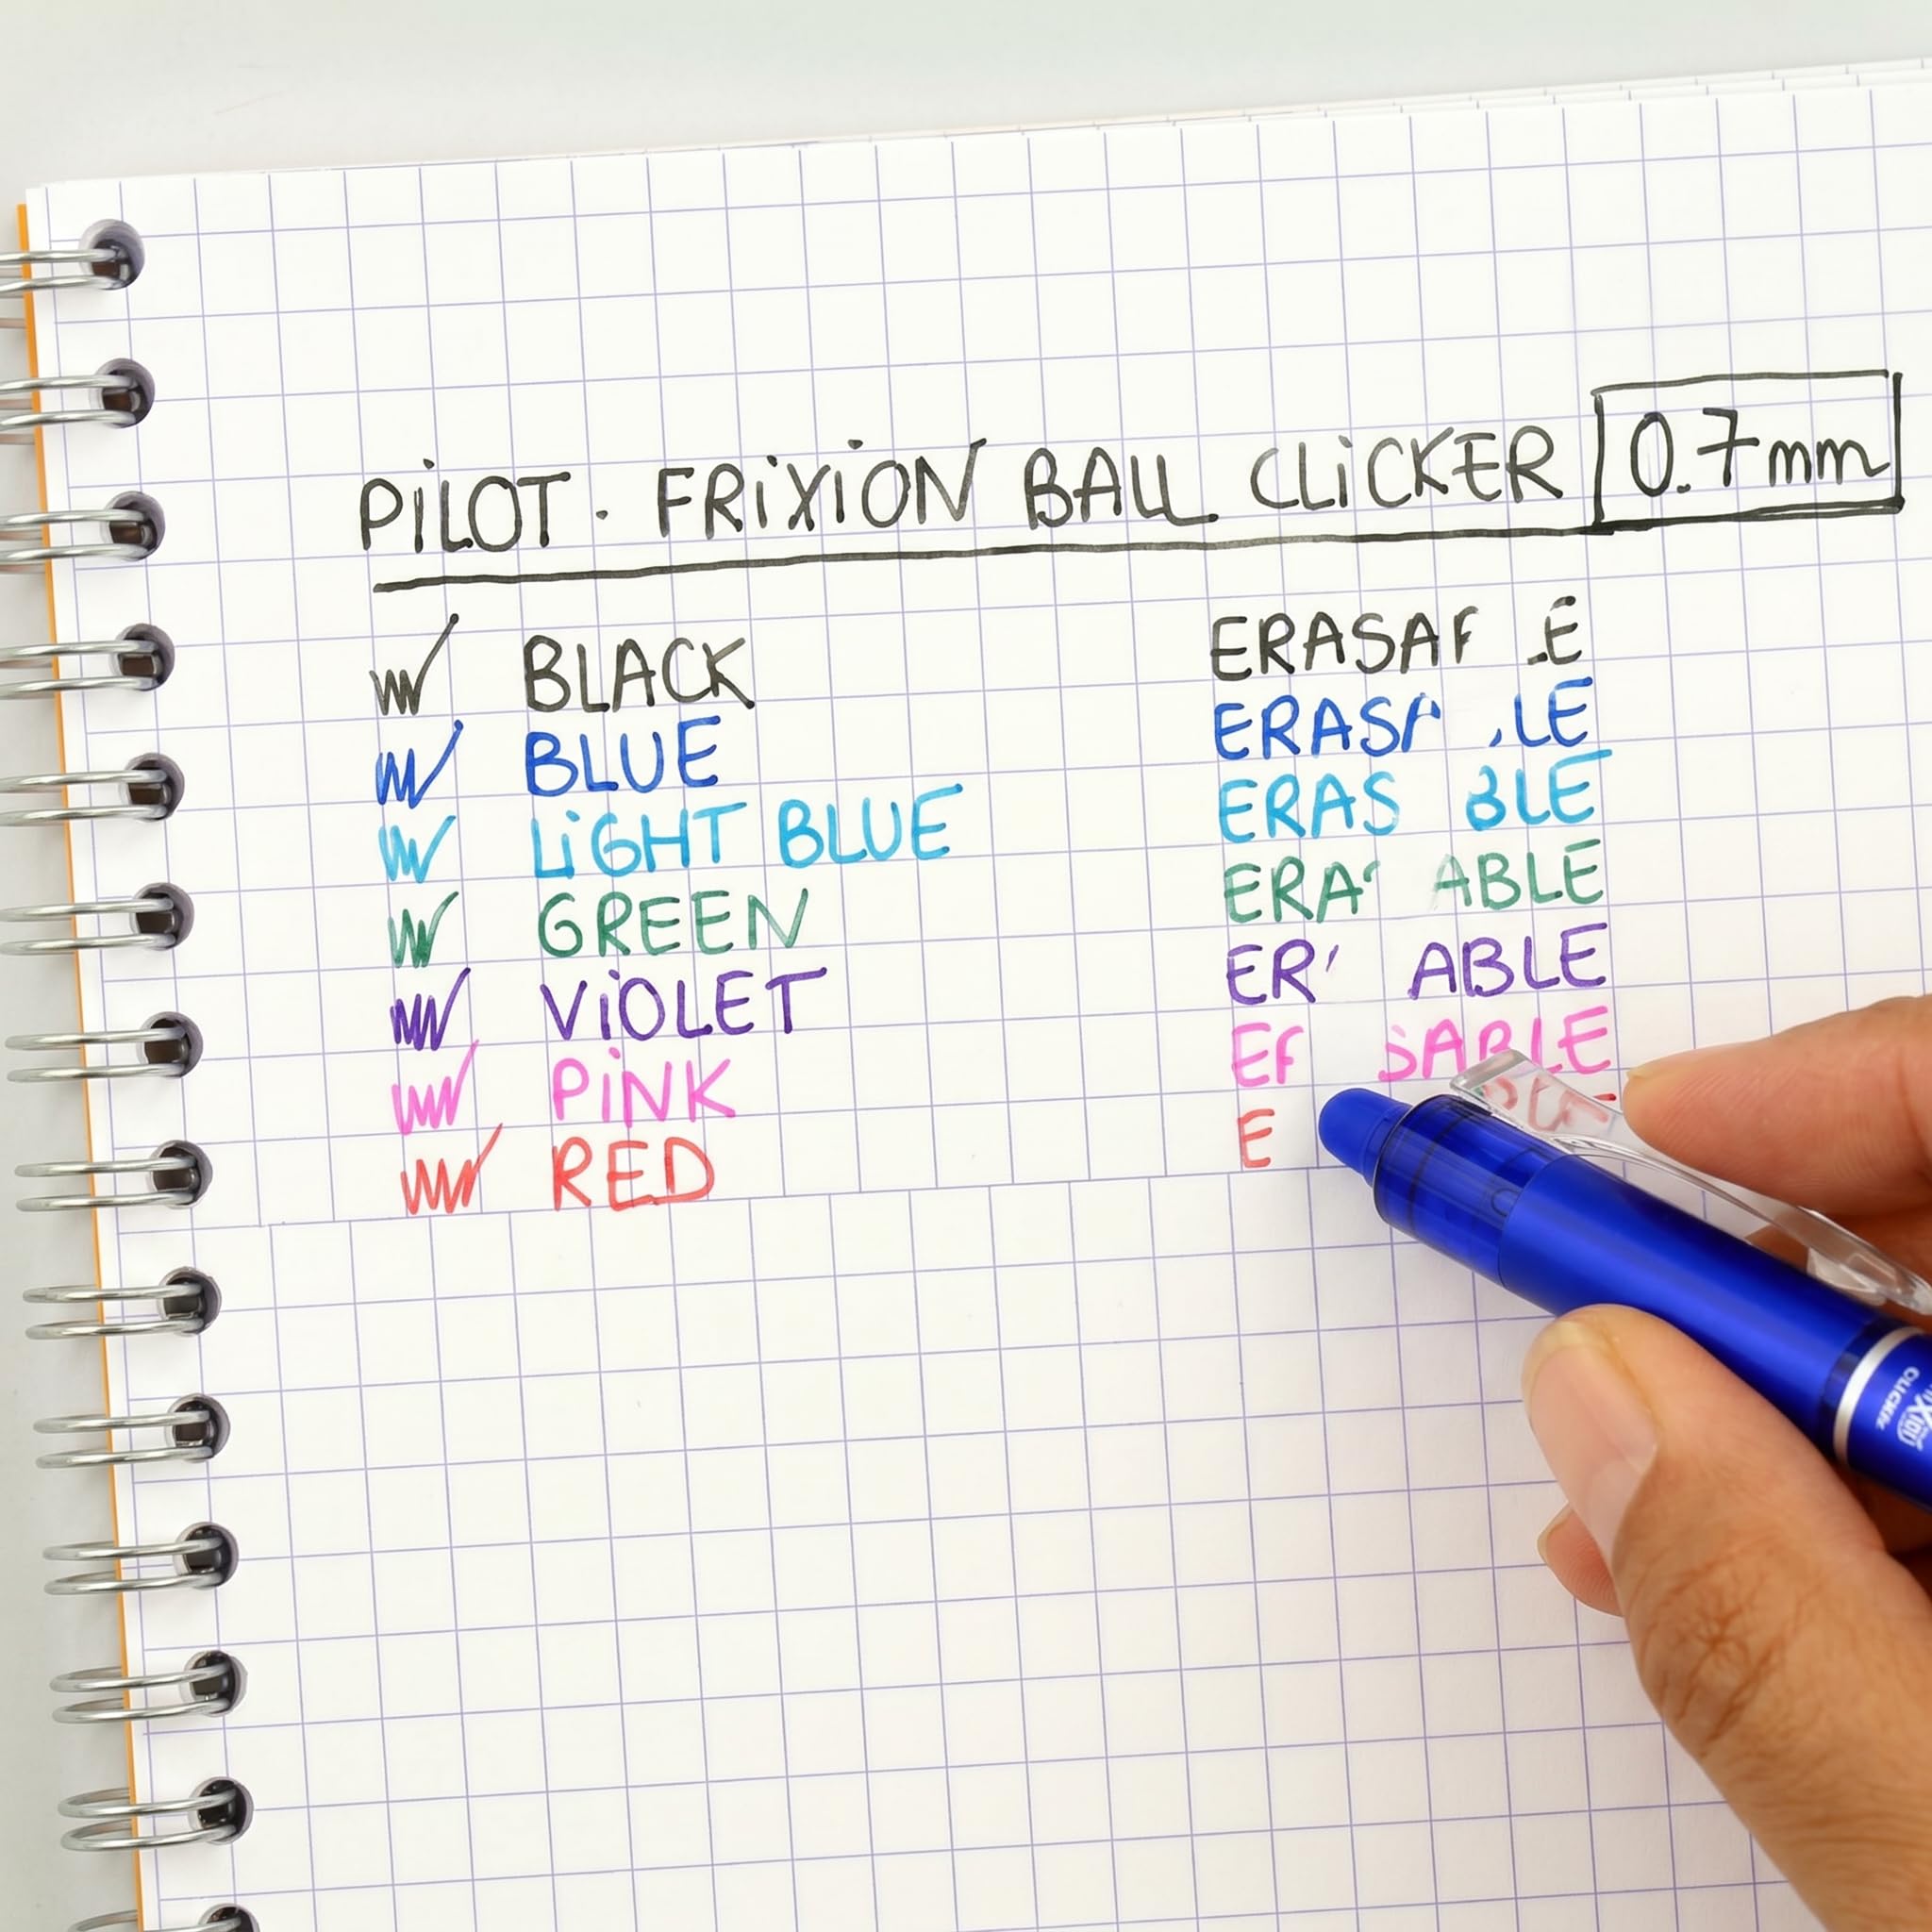 PiLOT . FRiXiON BALL CLiCKER 0.7mm
BLACK ERASA E
BLUE ERAS LE
LiGHT BLUE ERAS BLE
GREEN ERA ABLE
ViOLET ER ABLE
PiNK E SABLE
RED E
CLICKER